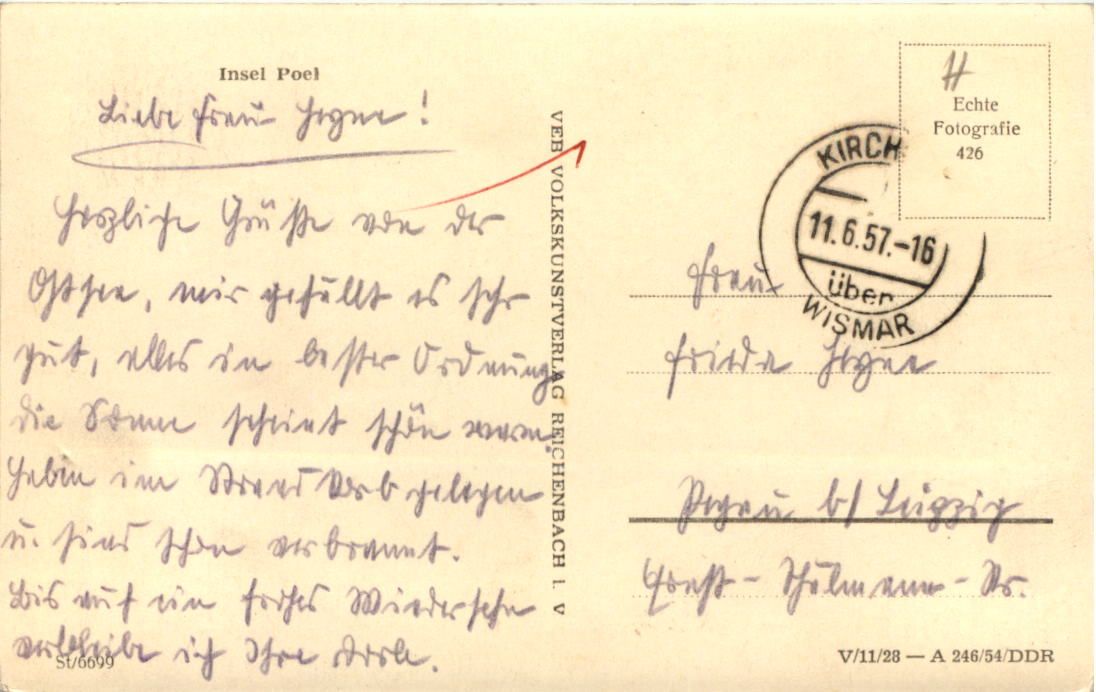 Insel Poel
Liebe Frau Heyne!
Herzliche Grüße von der
Ostsee, mir gefällt es sehr
gut, alles in bester Ordnung
die Sonne scheint schön warm.
Haben im Strandkorb gelegen
u. sind schon verbrannt.
Bis auf ein frohes Wiedersehn
verbleibe ich Ihre
St/6699
VEB VOLKSKUNSTVERLAG REICHENBACH i. V
Echte
Fotografie
426
KIRCH
11.6.57.-16
über
WISMAR
Frau
Frieda Heyne
Pegau b/ Leipzig
Ernst-Thälmann-Str.
V/11/28 — A 246/54/DDR